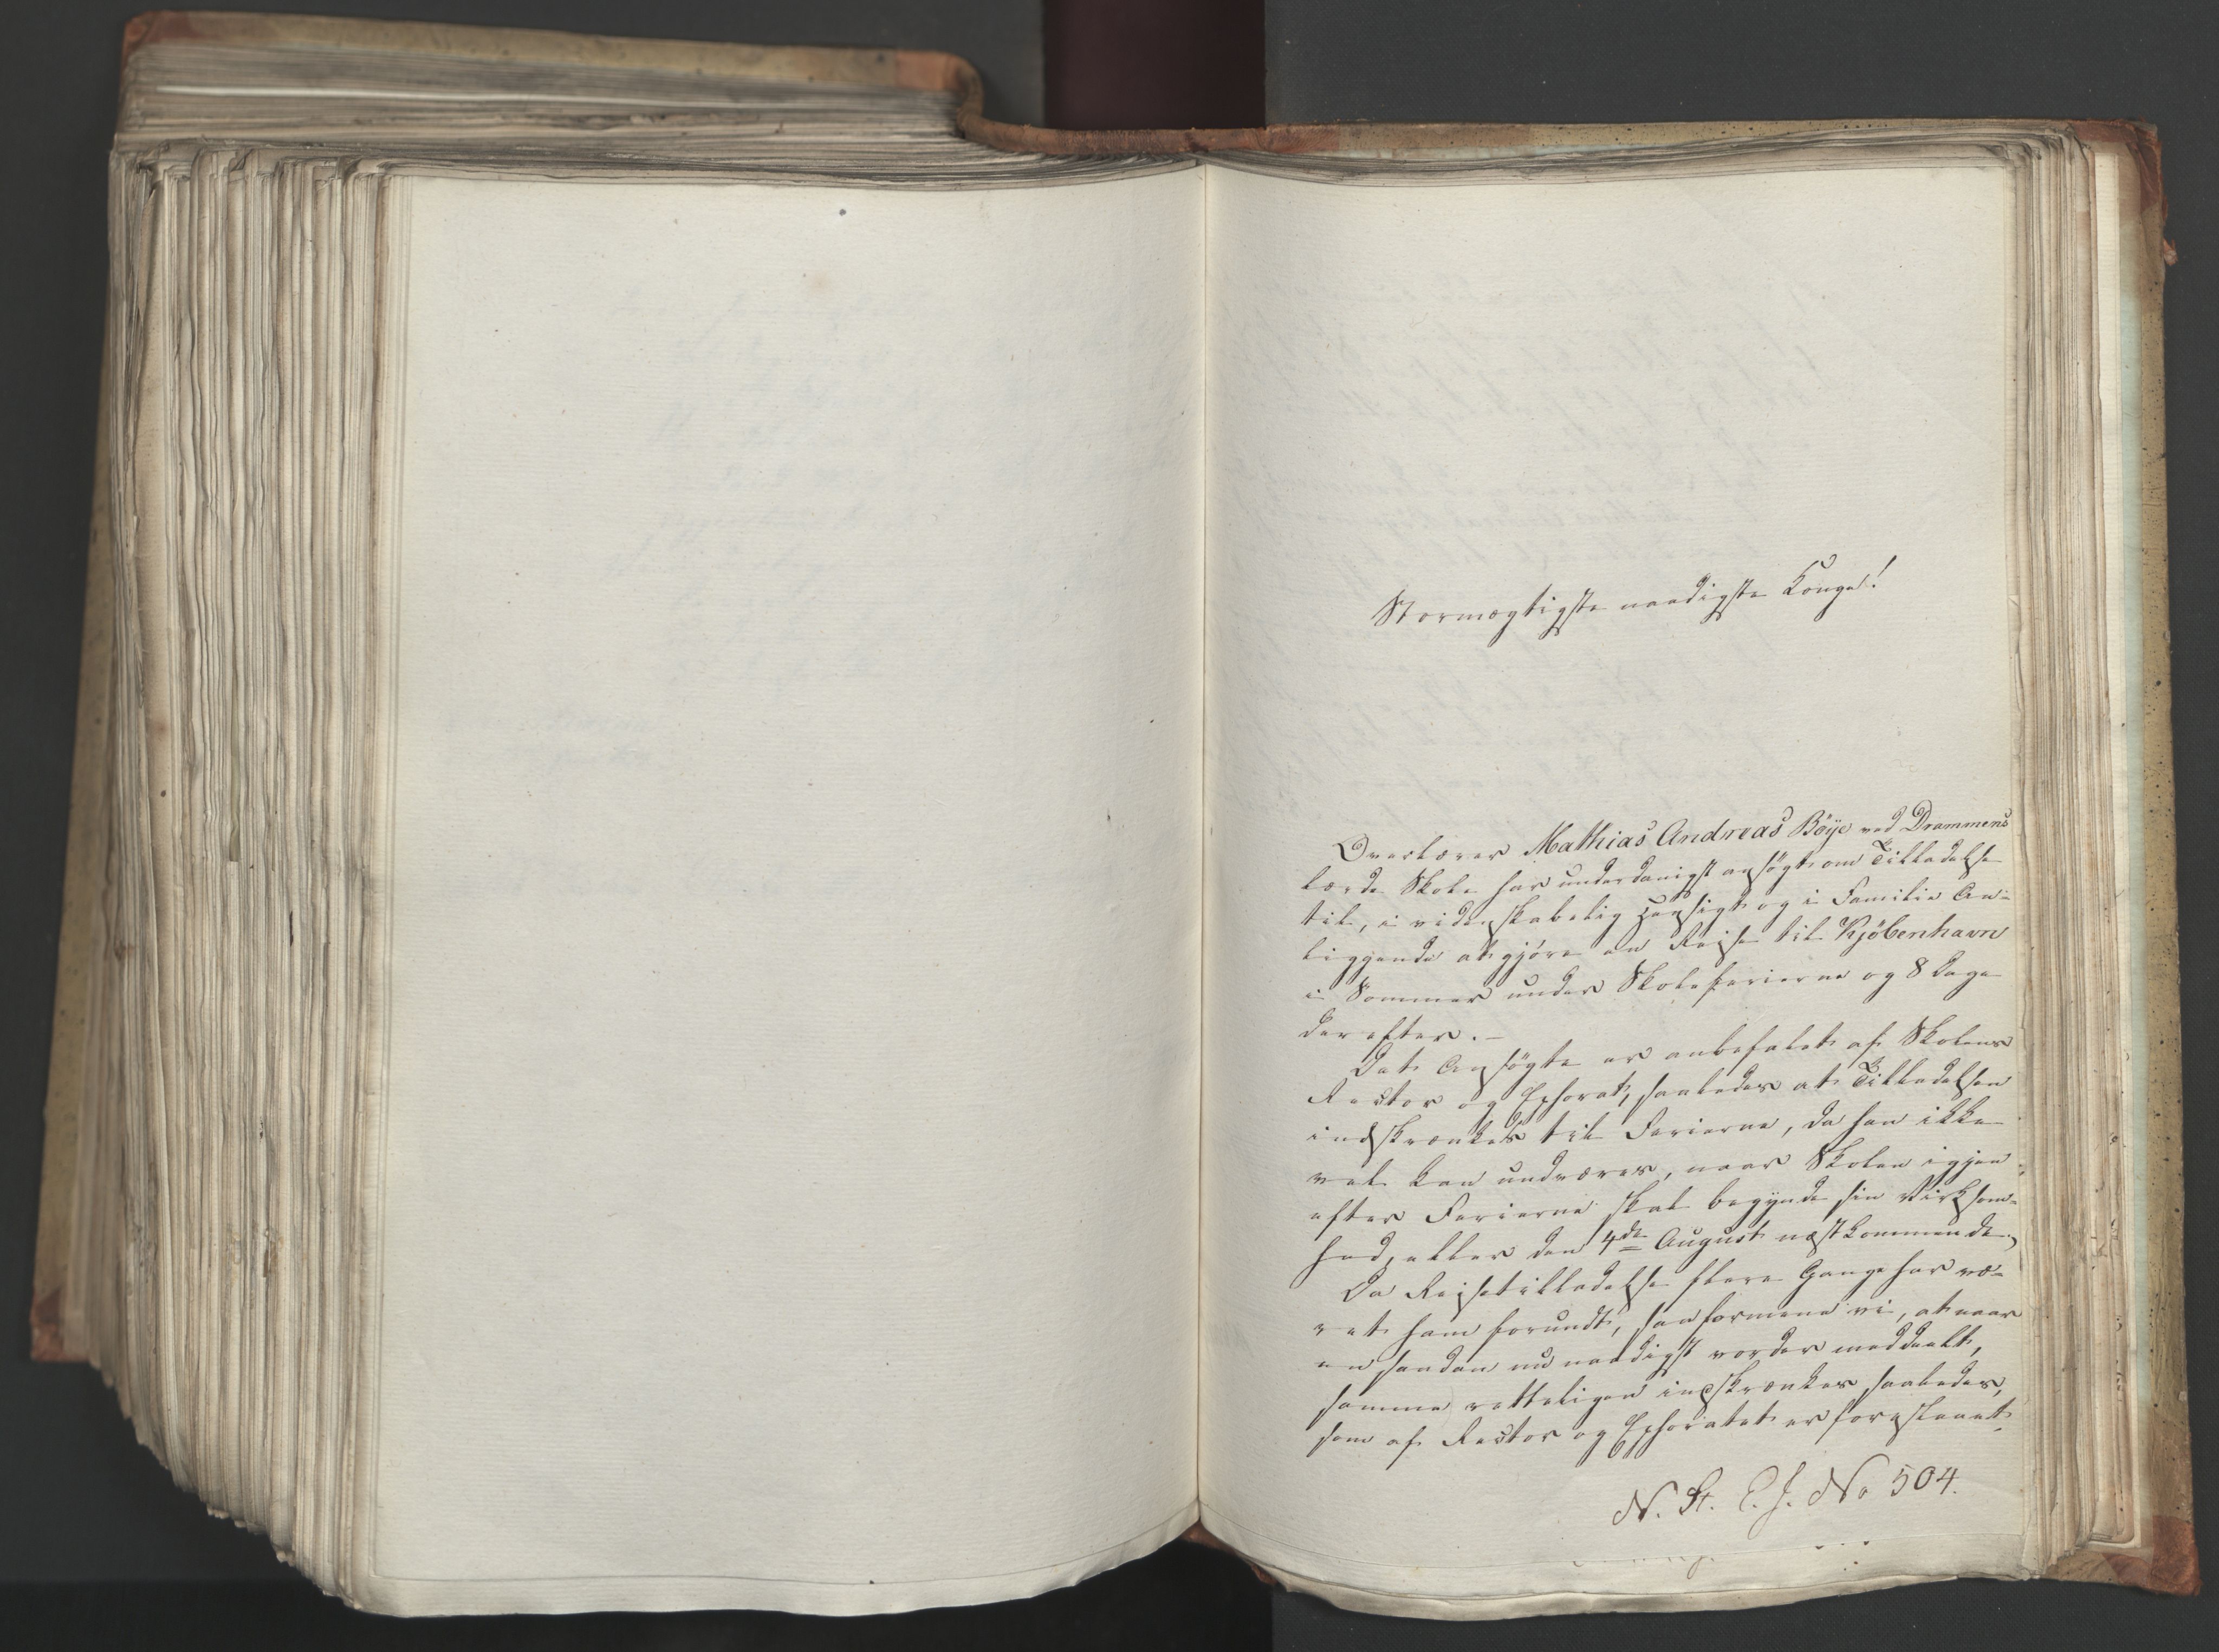 Stormægtigste naadigste Konge!
Overlærer Mathias Andreas Böye ved Drammens
lærde Skole har underdanigst ansögt om Tilladelse
til, i videnskabelig Hensigt og i Familie An-
liggende at gjøre en Reise til Kjöbenhavn
i Sommer under Skoleferierne og 8 Dage
derefter. –
Det Ansögte er anbefalet af Skolens
Rector og Ephorat, saaledes at Tilladelsen
indskrænkes til Ferierne, da han ikke
vel kan undværes, naar Skolen igjen
efter Ferierne skal begynde sin Virksom-
hed, eller den 4de August næstkommende.
Da Reisetilladelse flere Gange har væ-
ret ham forundt, saa formene vi, at naar
en saadan nu naadigst vorder meddeelt,
samme retteligen indskrænkes saaledes,
som af Rector og Ephoratet er foreslaaet.
N. St. E. J. No 504.